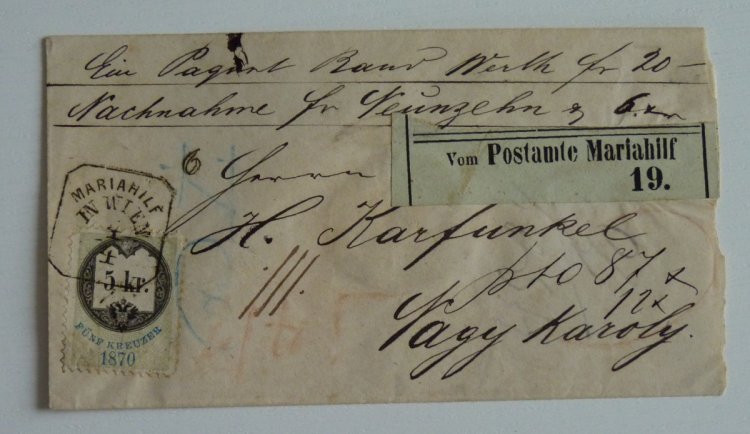 Ein Paquet Band Werth fr 20 —
Nachnahme fr Neunzehn & 6. xr
Vom Postamte Mariahilf
19.
6
Herrn
MARIAHILF
IN WIEN
H. Karfunkel
5 kr.
pto 87 x
12 x
FÜNF KREUZER
1870
Nagy Karoly.